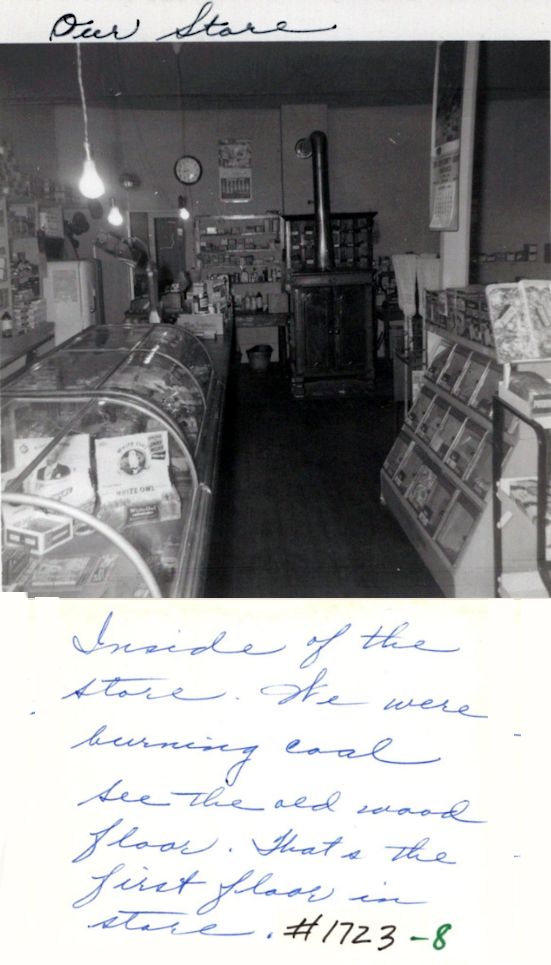 Our Store
WHITE OWL
WHITE OWL
White Owl
Inside of the
store. We were
burning coal
see the old wood
floor. That's the
first floor in
store. #1723-8